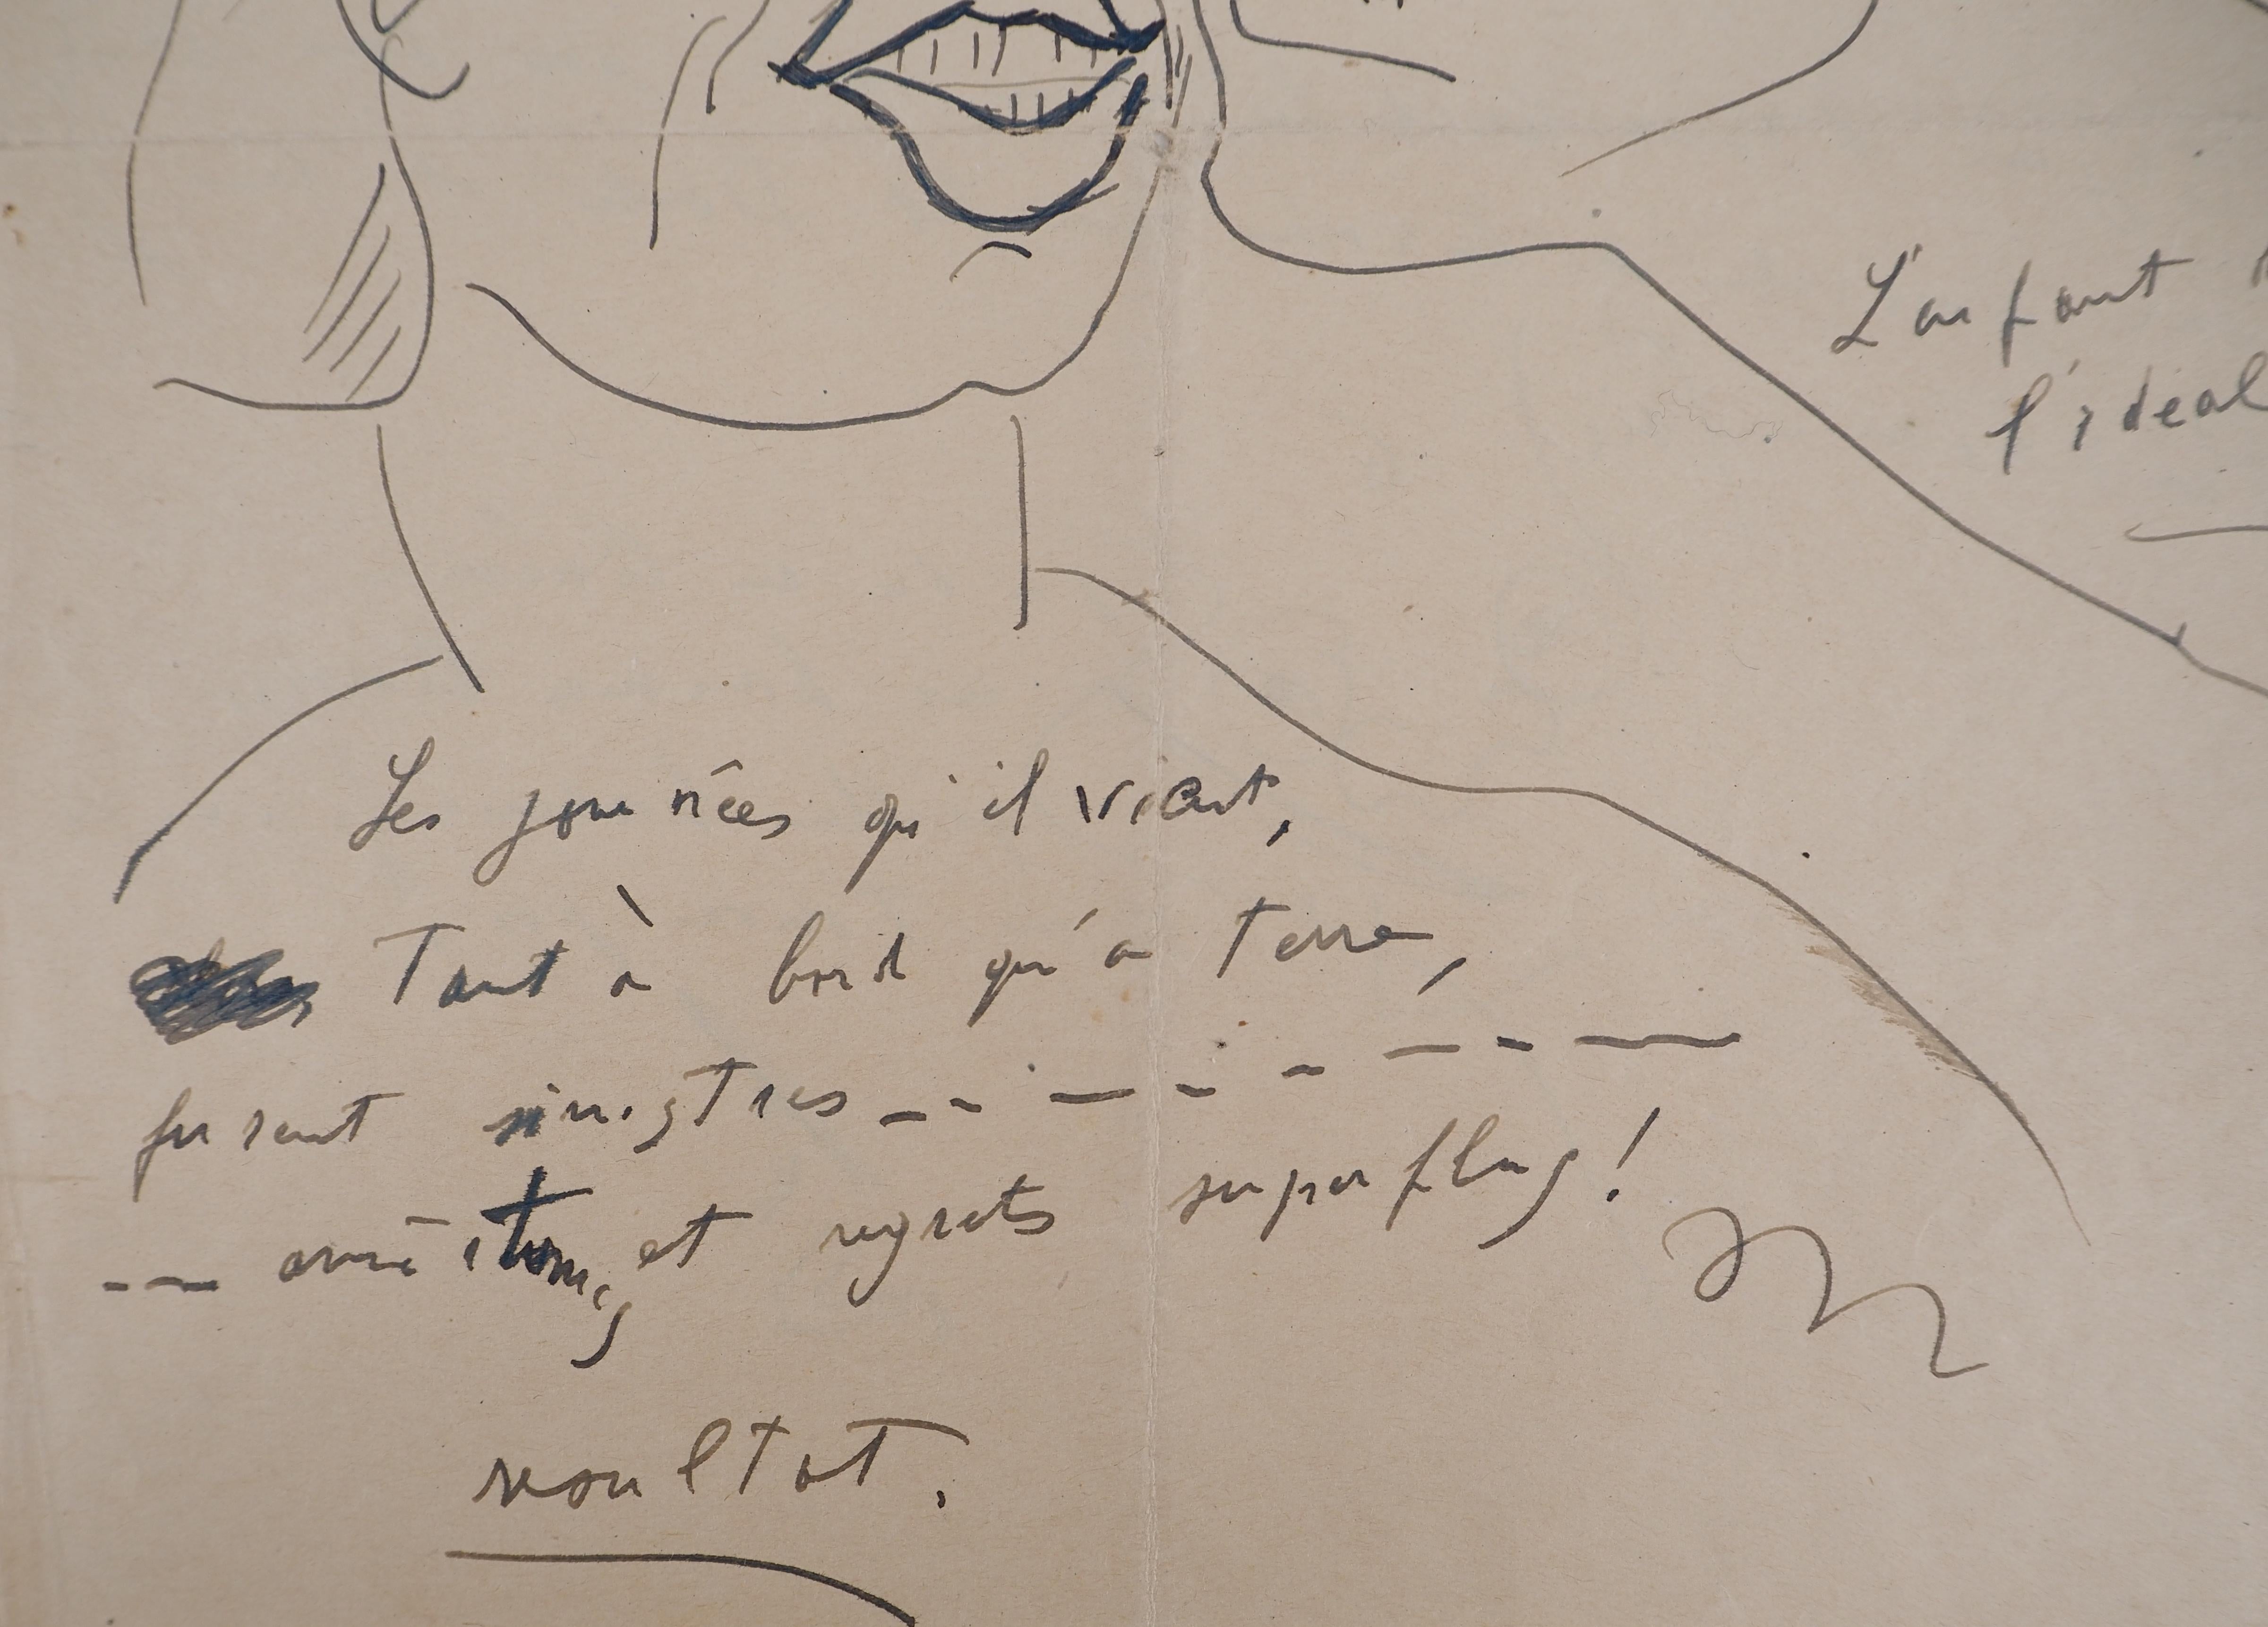 L'enfant
l'idéal
Les journées qu'il vécut,
Tant à bord qu'à terre,
furent sinistres -- — - - — - —
-- — amertume, et regrets superflus!
resultat.